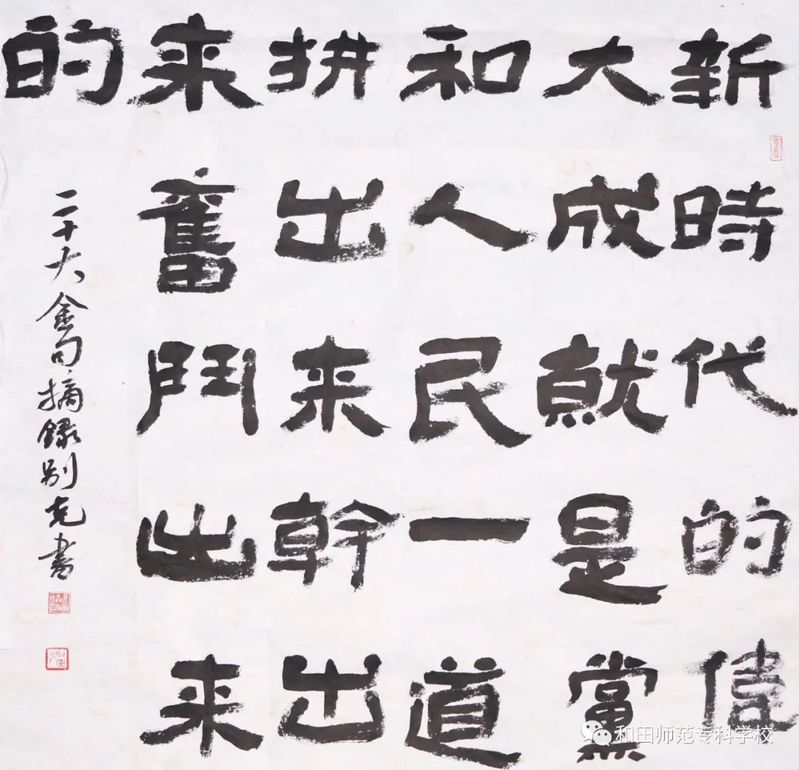 新時代的偉
大成就是黨
和人民一道
拼出来幹出
来奮鬥出来
的
二十大金句摘錄別克書
和田师范专科学校